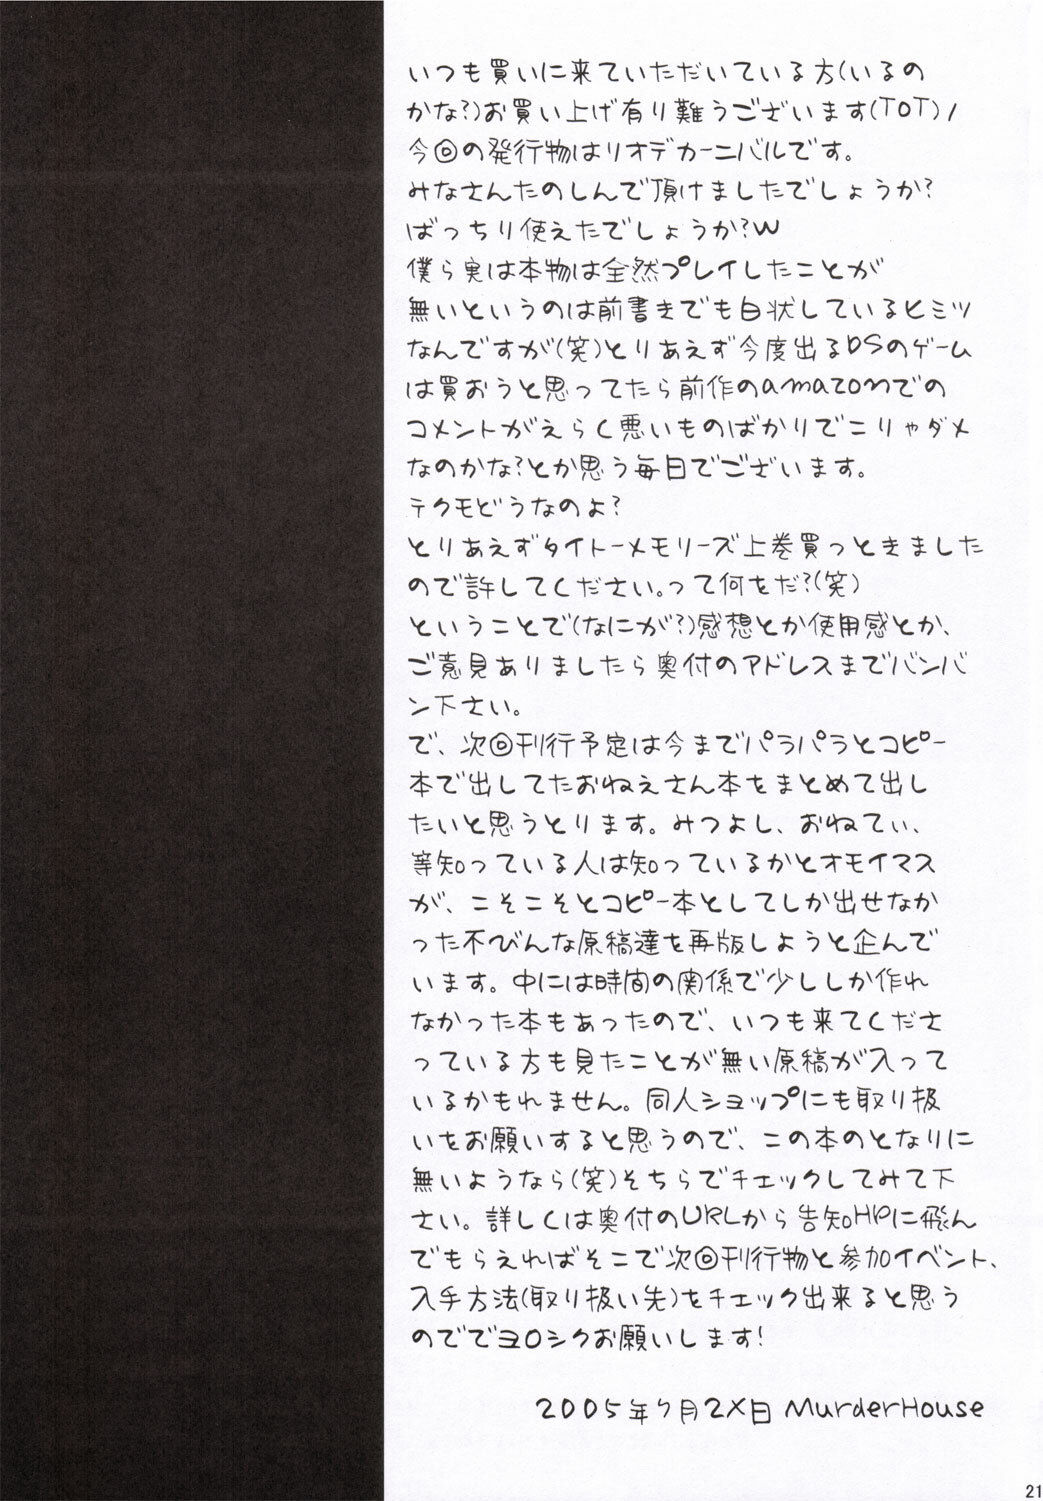 いつも買いに来ていただいている方(いるの
かな?)お買い上げ有り難うございます(TOT)/
今回の発行物はリオデカーニバルです。
みなさんたのしんで頂けましたでしょうか?
ばっちり使えたでしょうか?w
僕ら実は本物は全然プレイしたことが
無いというのは前書きでも白状しているヒミツ
なんですが(笑)とりあえず今度出るDSのゲーム
は買おうと思ってたら前作のamazonでの
コメントがえらく悪いものばかりでこりゃダメ
なのかな?とか思う毎日でございます。
テクモどうなのよ?
とりあえずタイトーメモリーズ上巻買っときました
ので許してください。って何をだ?(笑)
ということで(なにが?)感想とか使用感とか、
ご意見ありましたら奥付のアドレスまでバンバ
ン下さい。
で、次回刊行予定は今までパラパラとコピー
本で出してたおねえさん本をまとめて出し
たいと思うとります。みつよし、おねてぃ、
等知っている人は知っているかとオモイマス
が、こそこそとコピー本としてしか出せなか
った不びんな原稿達を再版しようと企んで
います。中には時間の関係で少ししか作れ
なかった本もあったので、いつも来てくださ
っている方も見たことが無い原稿が入って
いるかもれません。同人ショップにも取り扱
いをお願いすると思うので、この本のとなりに
無いようなら(笑)そちらでチェックしてみて下
さい。詳しくは奥付のURLから告知HPに飛ん
でもらえればそこで次回刊行物と参加イベント、
入手方法(取り扱い先)をチェック出来ると思う
のででヨロシクお願いします!
2005年7月2X日 MurderHouse
21